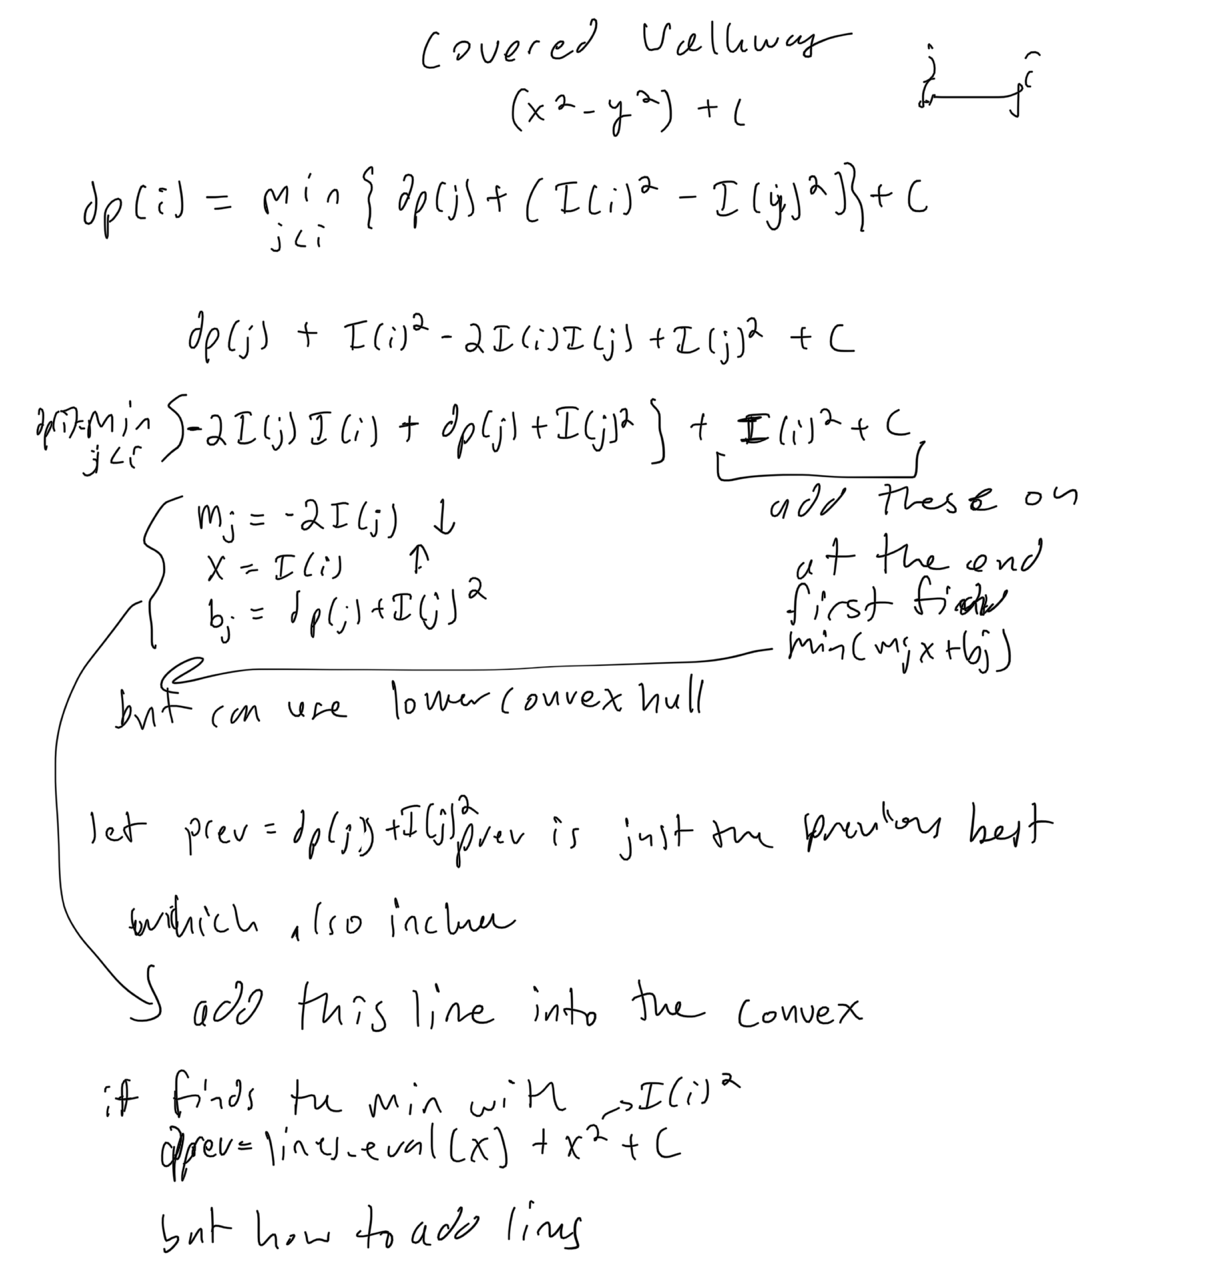 Covered Walkway
(x² - y²) + C
j i
dp(i) = min { dp(j) + (I(i)² - I(j)²)} + C
j<i
dp(j) + I(i)² - 2I(i)I(j) + I(j)² + C
dp(i)=min {-2I(j)I(i) + dp(j)+I(j)² } + I(i)² + C
j<i
mj = -2I(j) ↓
x = I(i) ↑
bj = dp(j)+I(j)²
add these on
at the end
first find
min(mjx+bj)
but can use lower convex hull
let prev = dp(j)+I(j)² prev is just the previous best
which also
add this line into the convex
it finds the min with → I(i)²
prev = lines.eval(x) + x² + C
but how to add lines